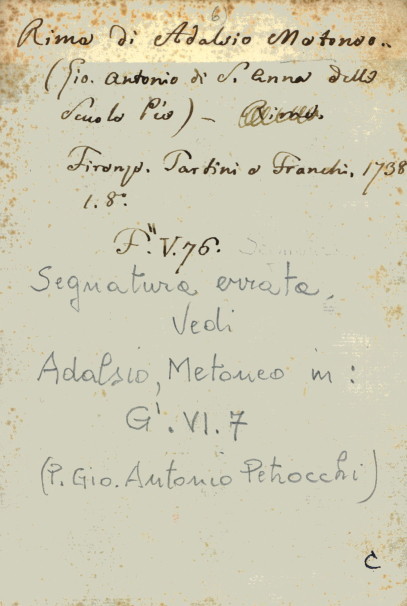 6
Rime di Adalsio Metoneo..
(Gio. Antonio di S. Anna delle
Scuole Pie) –
Firenze. Tartini e Franchi, 1738
1. 8°.
F." V. 76.
Segnatura errata,
Vedi
Adalsio, Metoneo in:
G'. VI. 7
(P. Gio. Antonio Petrocchi)
C